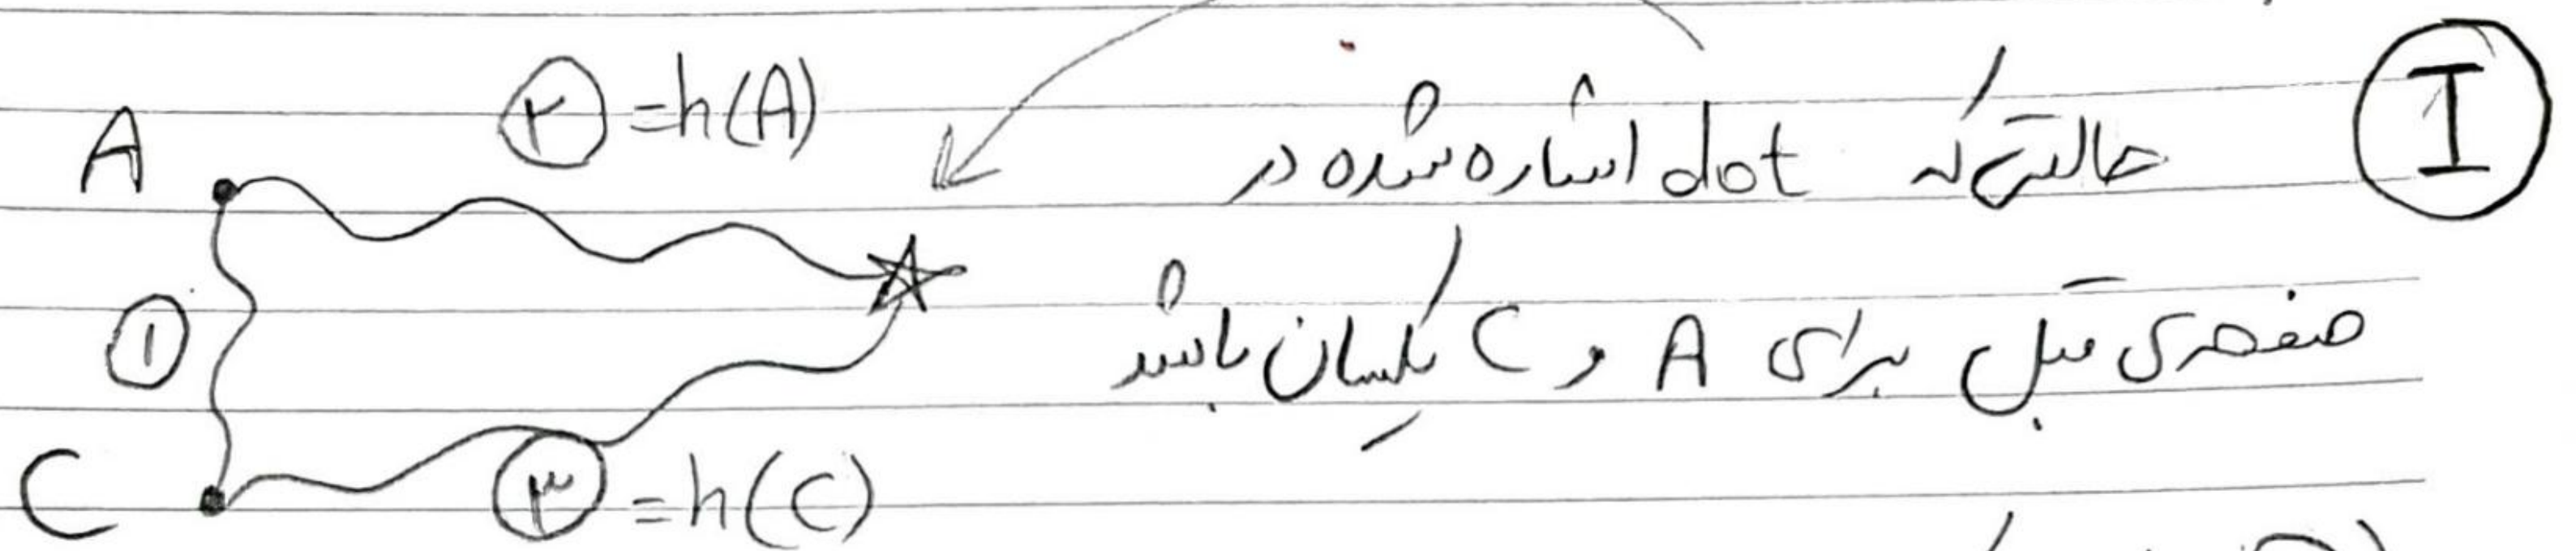 I
حالتی که dot اشاره شده در
صفحه‌ی قبل برای A و C یکسان باشد
A
۲ = h(A)
۱
C
۳ = h(C)